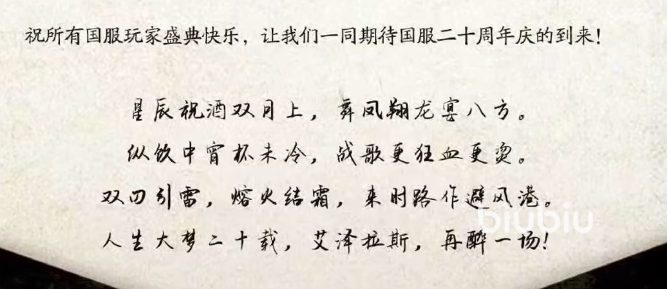 祝所有国服玩家盛典快乐，让我们一同期待国服二十周年庆的到来！
星辰祝酒双月上，舞凤翔龙宴八方。
纵饮中宵杯未冷，战歌更狂血更烫。
双刃引雷，熔火结霜，来时路作避风港。
人生大梦二十载，艾泽拉斯，再醉一场！
biubiu